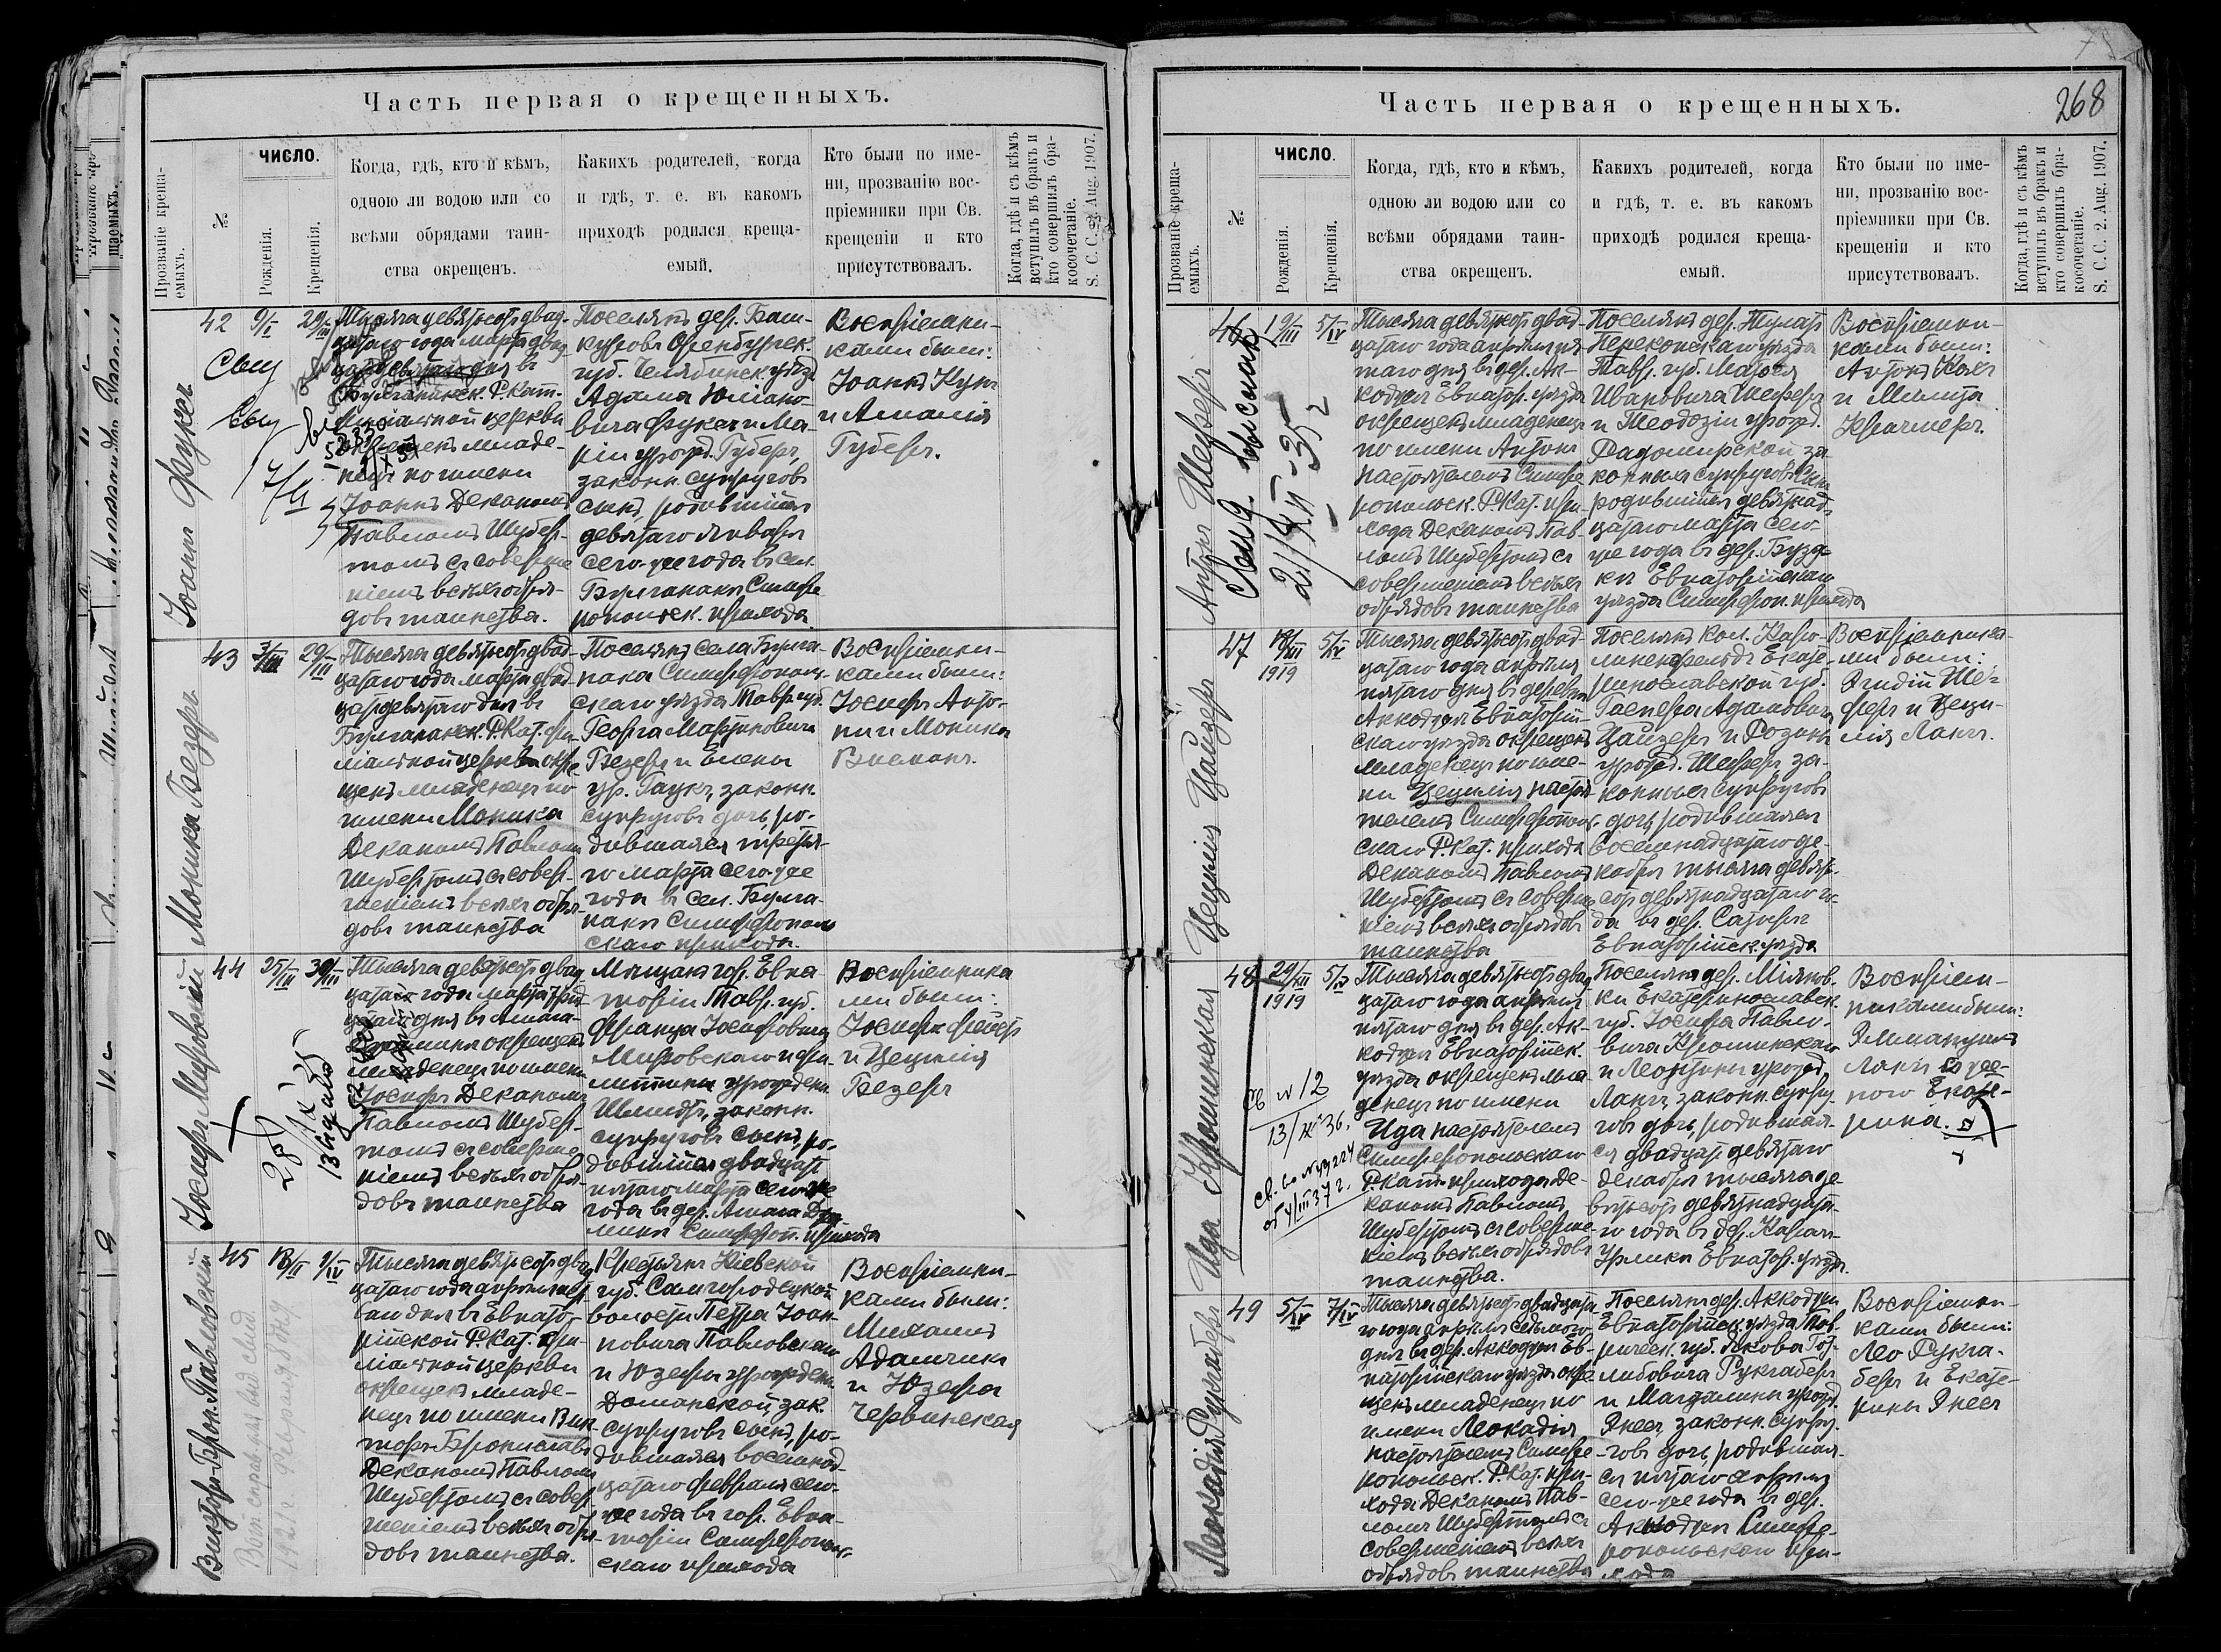 Часть первая о крещенныхъ.
Прозваніе крещаемыхъ.
№
ЧИСЛО.
Рожденія.
Крещенія.
Когда, гдѣ, кто и кѣмъ,
одною ли водою или со
всѣми обрядами таин-
ства окрещенъ.
Какихъ родителей, когда
и гдѣ, т. е. въ какомъ
приходѣ родился креща-
емый.
Кто были по име-
ни, прозванію вос-
пріемники при Св.
крещеніи и кто
присутствовалъ.
Когда, гдѣ и съ кѣмъ
вступилъ въ бракъ и
кто совершилъ бра-
косочетаніе.
S. C. C. 2. Aug. 1907.
Іоаннъ Фуксъ
42
9/I
29/III
Тысяча девятьсотъ двад-
цатаго года марта двад-
цать девятаго дня въ
Булганакск. Р. Кат.
филіальной церкви
окрещенъ младе-
нецъ по имени
Іоаннъ Деканомъ
Павломъ Шубер-
томъ съ соверше-
ніемъ всѣхъ обря-
довъ таинства.
Поселянъ дер. Баш-
курова Оренбургск.
губ. Челябинск. уѣзда
Адама
вича Фуксъ и Ма-
ріи урожд. Губеръ,
законн. супруговъ
сынъ, родившійся
девятаго Января
сего-же года въ сел.
Булганакъ Симфе-
ропольск. прихода.
Воспріемни-
ками были:
Іоаннъ Кунъ
и Амалія
Губеръ.
Моника Безеръ
43
3/III
29/III
Тысяча девятьсотъ двад-
цатаго года марта двад-
цать девятаго дня въ
Булганакск. Р. Кат. фи-
ліальной церкви окре-
щенъ младенецъ по
имени Моника
Деканомъ Павломъ
Шубертомъ съ совер-
шеніемъ всѣхъ обря-
довъ таинства
Поселянъ села Булга-
нака Симферополь-
скаго уѣзда Тавр. губ.
Георга Мартиновича
Безеръ и Елены
ур. Гаукъ, законн.
супруговъ дочь, ро-
дившаяся третья-
го марта сего-же
года въ сел. Булга-
накъ Симферополь-
скаго прихода.
Воспріемни-
ками были:
Іосифъ Анто-
ни и Моника
Іосифъ Мировскій
44
25/III
30/III
Тысяча девятьсотъ двад-
цатаго года марта трид-
цатаго дня въ
окрещенъ
младенецъ по имени
Іосифъ Деканомъ
Павломъ Шубер-
томъ съ соверше-
ніемъ всѣхъ обря-
довъ таинства
Мѣщанъ гор. Евпа-
торіи Тавр. губ.
Франца Іосифовича
Мировскаго и
урожденн.
Шмидтъ, законн.
супруговъ сынъ, ро-
дившійся двадцать
пятаго марта сего-же
года въ дер.
Симфероп. прихода
Воспріемника-
ми были:
Іосифъ
и Цецилія
Безеръ
Викторъ-Брон. Павловскій
45
18/II
1/IV
Тысяча девятьсотъ двад-
цатаго года апрѣля пер-
ваго дня въ Евпато-
рійской Р. Кат. фи-
ліальной церкви
окрещенъ младе-
нецъ по имени Вик-
торъ-Брониславъ
Деканомъ Павломъ
Шубертомъ съ совер-
шеніемъ всѣхъ обря-
довъ таинства.
Крестьянъ Кіевской
губ. Самгородецкой
волости Петра Іоан-
новича Павловскаго
и Юзефы урожденн.
Доманской, зак.
супруговъ сынъ, ро-
дившаяся восемнад-
цатаго февраля сего-
же года въ гор. Евпа-
торіи Симферополь-
скаго прихода
Воспріемни-
ками были:
Михаилъ
Адамчикъ
и Юзефа
Червинская
Часть первая о крещенныхъ.
268
Прозваніе крещаемыхъ.
№
ЧИСЛО.
Рожденія.
Крещенія.
Когда, гдѣ, кто и кѣмъ,
одною ли водою или со
всѣми обрядами таин-
ства окрещенъ.
Какихъ родителей, когда
и гдѣ, т. е. въ какомъ
приходѣ родился креща-
емый.
Кто были по име-
ни, прозванію вос-
пріемники при Св.
крещеніи и кто
присутствовалъ.
Когда, гдѣ и съ кѣмъ
вступилъ въ бракъ и
кто совершилъ бра-
косочетаніе.
S. C. C. 2. Aug. 1907.
Антонъ Шеферъ
46
19/III
5/IV
Тысяча девятьсотъ двад-
цатаго года апрѣля пя-
таго дня въ дер. Ак-
коджа Евпатор. уѣзда
окрещенъ младенецъ
по имени Антонъ
настоятелемъ Симфе-
ропольск. Р. Кат. при-
хода Деканомъ Пав-
ломъ Шубертомъ съ
совершеніемъ всѣхъ
обрядовъ таинства
Поселянъ дер. Тулатъ
Перекопскаго уѣзда
Тавр. губ.
Ивановича Шеферъ
и Теодозіи урожд.
Радомирской за-
конныхъ супруговъ сынъ
родившійся девятнад-
цатаго марта сего
же года въ дер.
Евпаторійскаго
уѣзда Симфероп. прихода
Воспріемни-
ками были:
Антонъ Колъ
и Милица
Крачмеръ.
Цецилія Цайзеръ
47
18/XII
1919
5/IV
Тысяча девятьсотъ двад-
цатаго года апрѣля
пятаго дня въ деревнѣ
Аккоджа Евпаторій-
скаго уѣзда окрещенъ
младенецъ по име-
ни Цецилія настоя-
телемъ Симферополь-
скаго Р. Кат. прихода
Деканомъ Павломъ
Шубертомъ съ соверше-
ніемъ всѣхъ обрядовъ
таинства
Поселянъ кол. Каро-
линенфельдъ Екате-
ринославской губ.
Гаспера Адамовича
Цайзеръ и Розины
урожд. Шеферъ за-
конныхъ супруговъ
дочь, родившаяся
восемнадцатаго де-
кабря тысяча девять-
сотъ девятнадцатаго го-
да въ дер.
Евпаторійск. уѣзда
Воспріемника-
ми были:
Эгидій Ше-
феръ и Цеци-
лія Лангъ.
Ида Крошинская
48
29/XII
1919
5/IV
Тысяча девятьсотъ двад-
цатаго года апрѣля
пятаго дня въ дер. Ак-
коджа Евпаторійск.
уѣзда окрещенъ мла-
денецъ по имени
Ида настоятелемъ
Симферопольскаго
Р. Кат. прихода Де-
каномъ Павломъ
Шубертомъ съ соверше-
ніемъ всѣхъ обрядовъ
таинства.
Поселянъ дер.
Екатеринославск.
губ. Іосифа Павло-
вича Крошинскаго
и Леонтины урожд.
Лангъ, законн. супру-
говъ дочь, родившая-
ся двадцать девятаго
декабря тысяча де-
вятьсотъ девятнадцата-
го года въ дер.
Евпатор. уѣзда.
Воспріем-
никами были:
Эммануилъ
Лангъ съ же-
ною Екате-
рина.
Леокадія Рукгаберъ
49
5/IV
7/IV
Тысяча девятьсотъ двадцата-
го года апрѣля седьмого
дня въ дер. Аккоджа Ев-
паторійскаго уѣзда окре-
щенъ младенецъ по
имени Леокадія
настоятелемъ Симфе-
ропольск. Р. Кат. при-
хода Деканомъ Пав-
ломъ Шубертомъ съ
совершеніемъ всѣхъ
обрядовъ таинства
Поселянъ дер. Аккоджа
Евпаторійск. уѣзда Тав-
рическ. губ. Якова Гот-
либовича Рукгаберъ
и Магдалины урожд.
законн. супру-
говъ дочь, родившая-
ся пятаго апрѣля
сего-же года въ дер.
Аккоджа Симфе-
ропольскаго при-
хода
Воспріемни-
ками были:
Лео Рукга-
беръ и Екате-
рины